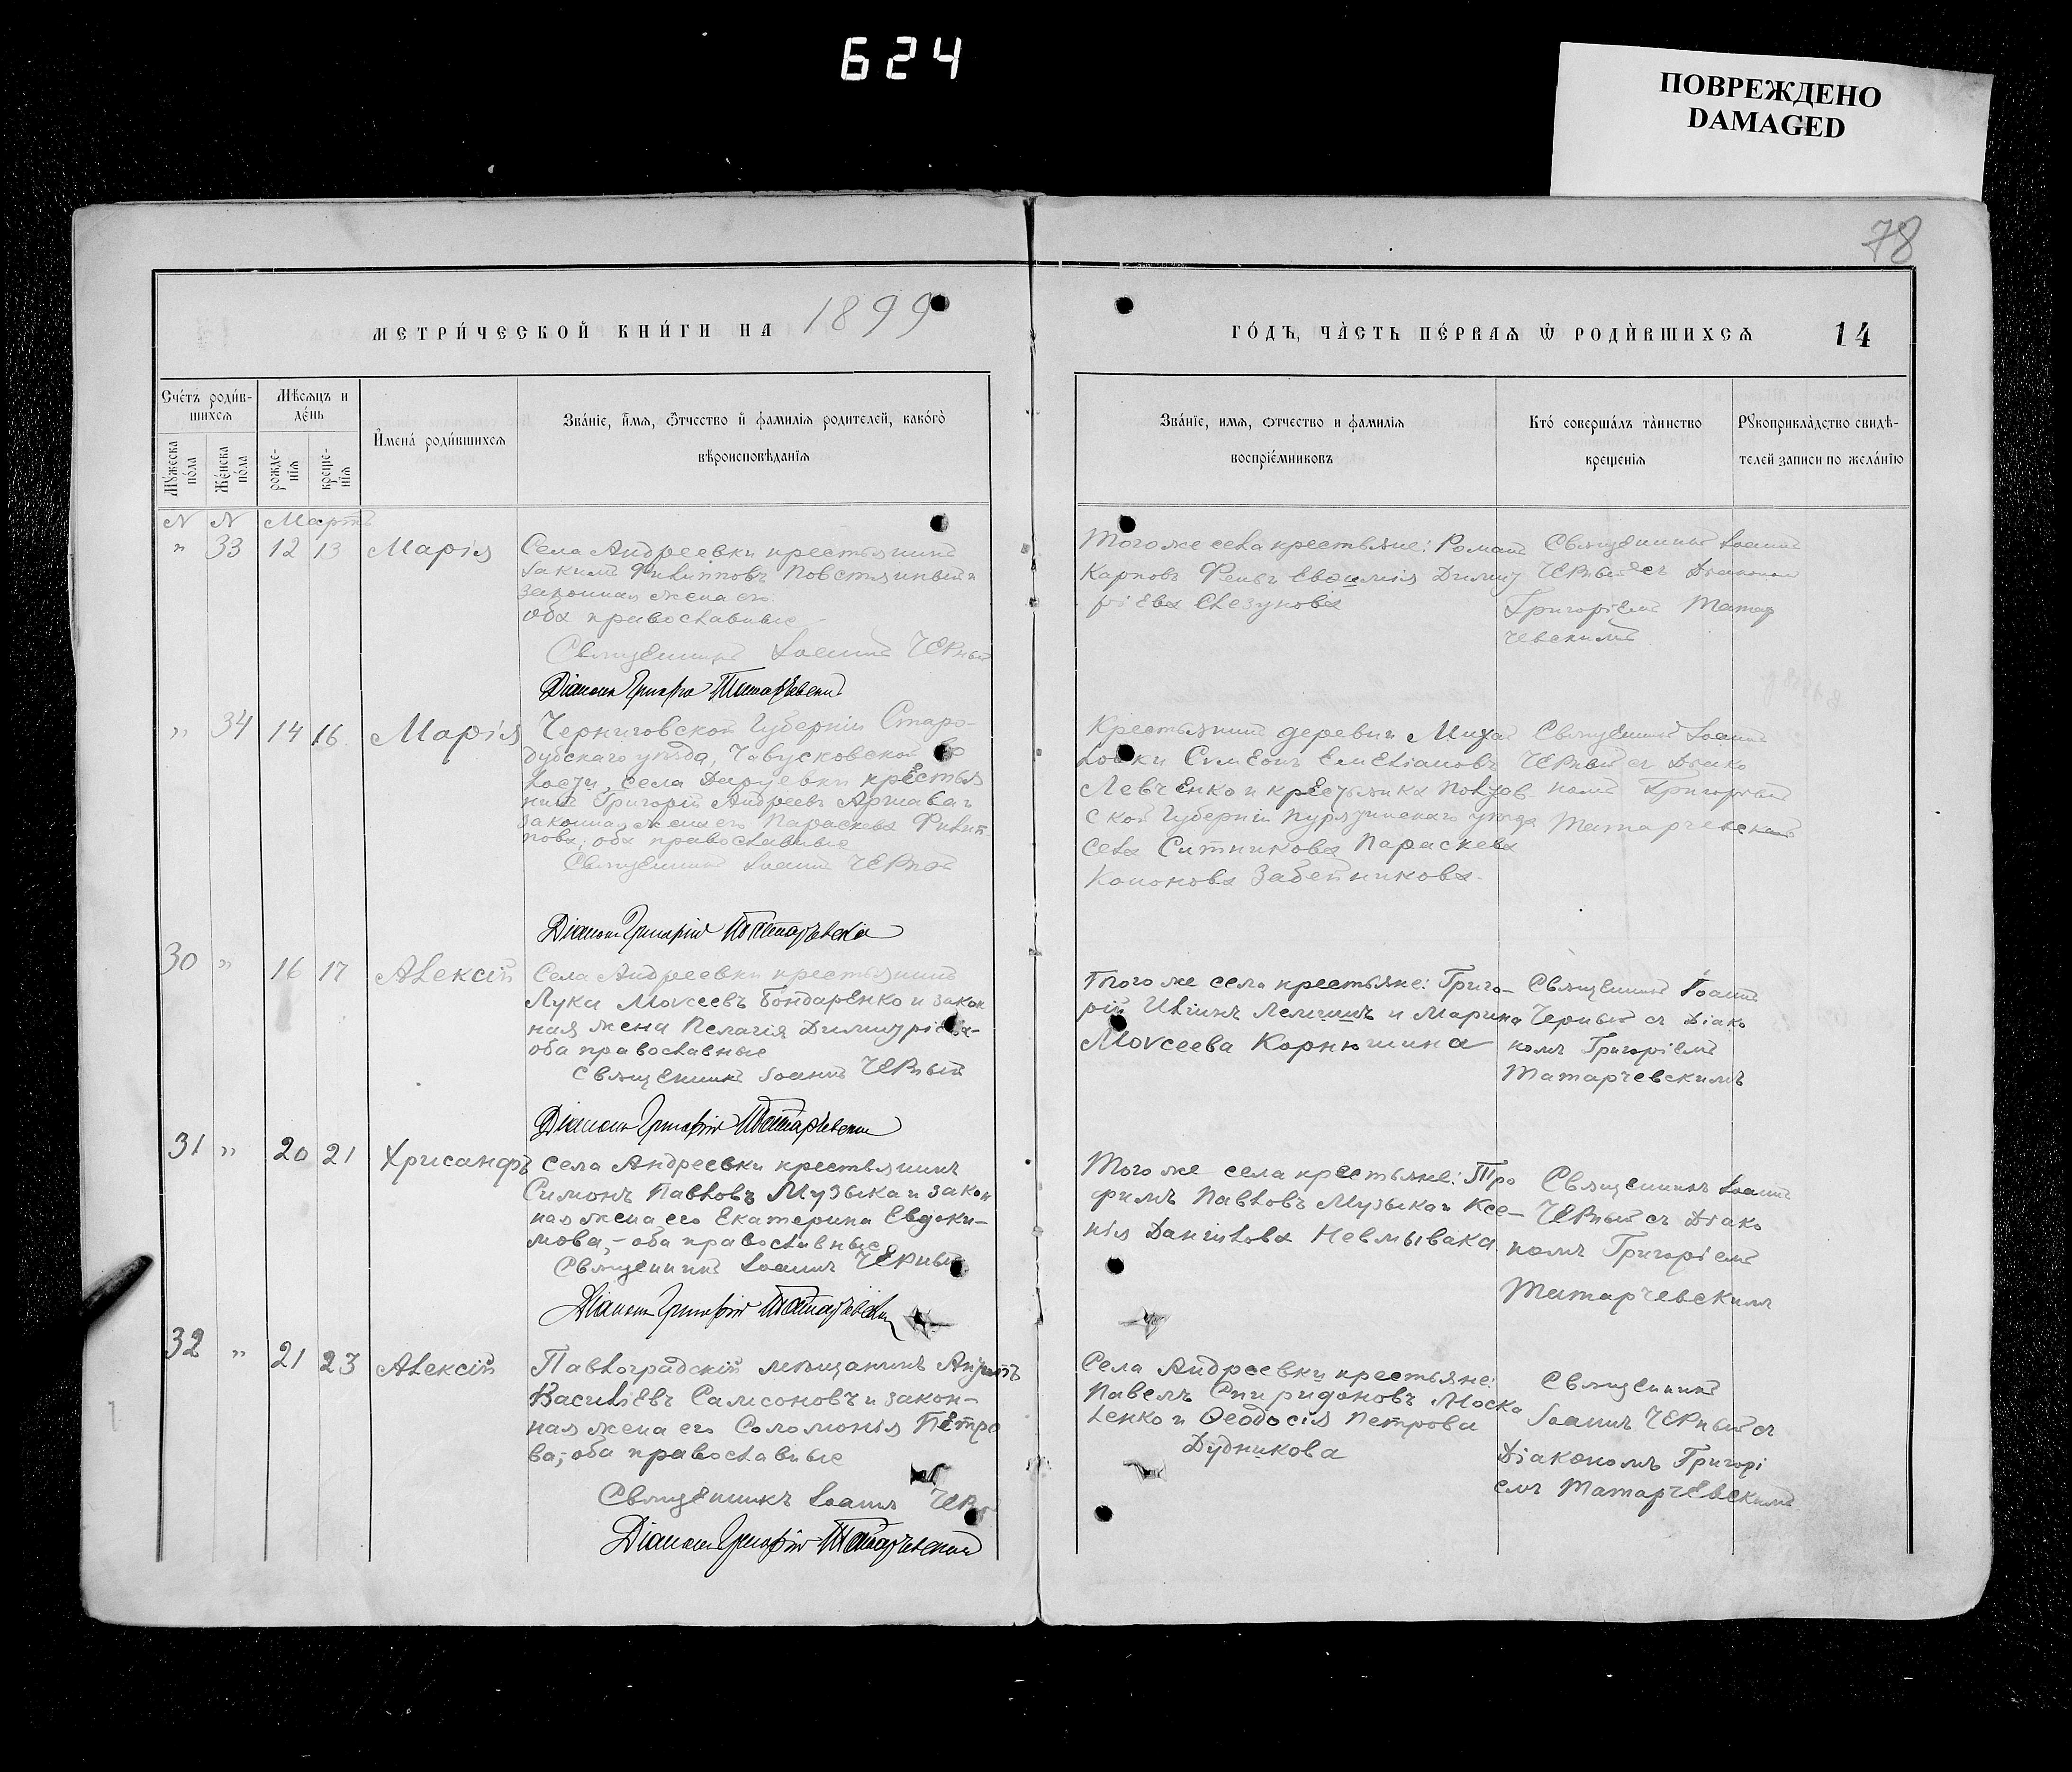 624
ПОВРЕЖДЕНО
DAMAGED
78
МЕТРИ́ЧЕСКОЙ КНИ́ГИ НА 1899
ГО́ДЪ, ЧА̀СТЬ ПЕ́РВАѦ Ѿ РОДЍВШИХСѦ 14
Счетъ роди́в-
шихсѧ
Мѣсѧцъ и
де́нь
Имена́ роди́вшихсѧ
Зва́нїе, и҆́мѧ, ѻ҆́тчество и҆ фами́лїѧ родителей, како́гѡ
вѣроисповѣданїѧ
Мꙋжеска
по́ла
Же́нска
по́ла
рожде-
нїѧ
креще-
нїѧ
Зва́нїе, имѧ, ѻтчество и фамилїѧ
воспрїе́мниковъ
Кто́ соверша́лъ та́инство
крещенїѧ
Рꙋкоприкла́дство свидѣ-
телей записи по жела́нїю
N N Мартъ
" 33 12 13 Марія
Села Андреевки крестьянинъ
Іакимъ Филипповъ Повстяный и
законная жена его
оба православные
Священникъ Іоаннъ Черный
Діаконъ Григорій Татарчевскій
Того же села крестьяне: Романъ
Карповъ и Евѳимія Димит
ріева
Священникъ Іоаннъ
Черный съ Діакономъ
Григоріемъ Татар
чевскимъ
" 34 14 16 Марія
Черниговской Губерніи Старо-
дубскаго уѣзда, во
лости, села крестья
нинъ Григорій Андреевъ и
законная жена его Параскева Филип
пова, оба православные
Священникъ Іоаннъ Черный
Діаконъ Григорій Татарчевскій
Крестьянинъ деревни Михай
ловки Симеонъ Емеліановъ
Левченко и крестьянка Полтав
ской Губерніи уѣзда
села Ситникова Параскева
Кононова
Священникъ Іоаннъ
Черный съ Діако
номъ Григоріемъ
Татарчевскимъ
30 " 16 17 Алексій
Села Андреевки крестьянинъ
Лука Моѵсеевъ Бондаренко и закон
ная жена Пелагія Димитріева-
оба православные
Священникъ Іоаннъ Черный
Діаконъ Григорій Татарчевскій
Того же села крестьяне: Григо-
рій Иліинъ и Марина
Моѵсеева Корнюшина
Священникъ Іоаннъ
Черный съ Діако
номъ Григоріемъ
Татарчевскимъ
31 " 20 21 Хрисанфъ
Села Андреевки крестьянинъ
Симонъ Павловъ Музыка и закон
ная жена его Екатерина Евдоки-
мова,- оба православные
Священникъ Іоаннъ Черный
Діаконъ Григорій Татарчевскій
Того же села крестьяне: Тро
фимъ Павловъ Музыка и Ксе-
нія Даніилова Невмывака
Священникъ Іоаннъ
Черный съ Діако
номъ Григоріемъ
Татарчевскимъ
32 " 21 23 Алексій
Павлоградскій мѣщанинъ
Василіевъ Самсоновъ и закон-
ная жена его Соломонія Петро
ва,-оба православные
Священникъ Іоаннъ Чер
Діаконъ Григорій Татарчевскій
Села Андреевки крестьяне:
Павелъ Спиридоновъ Моска
ленко и Ѳеодосія Петрова
Дудникова
Священникъ
Іоаннъ Черный съ
Діакономъ Григорі
емъ Татарчевскимъ